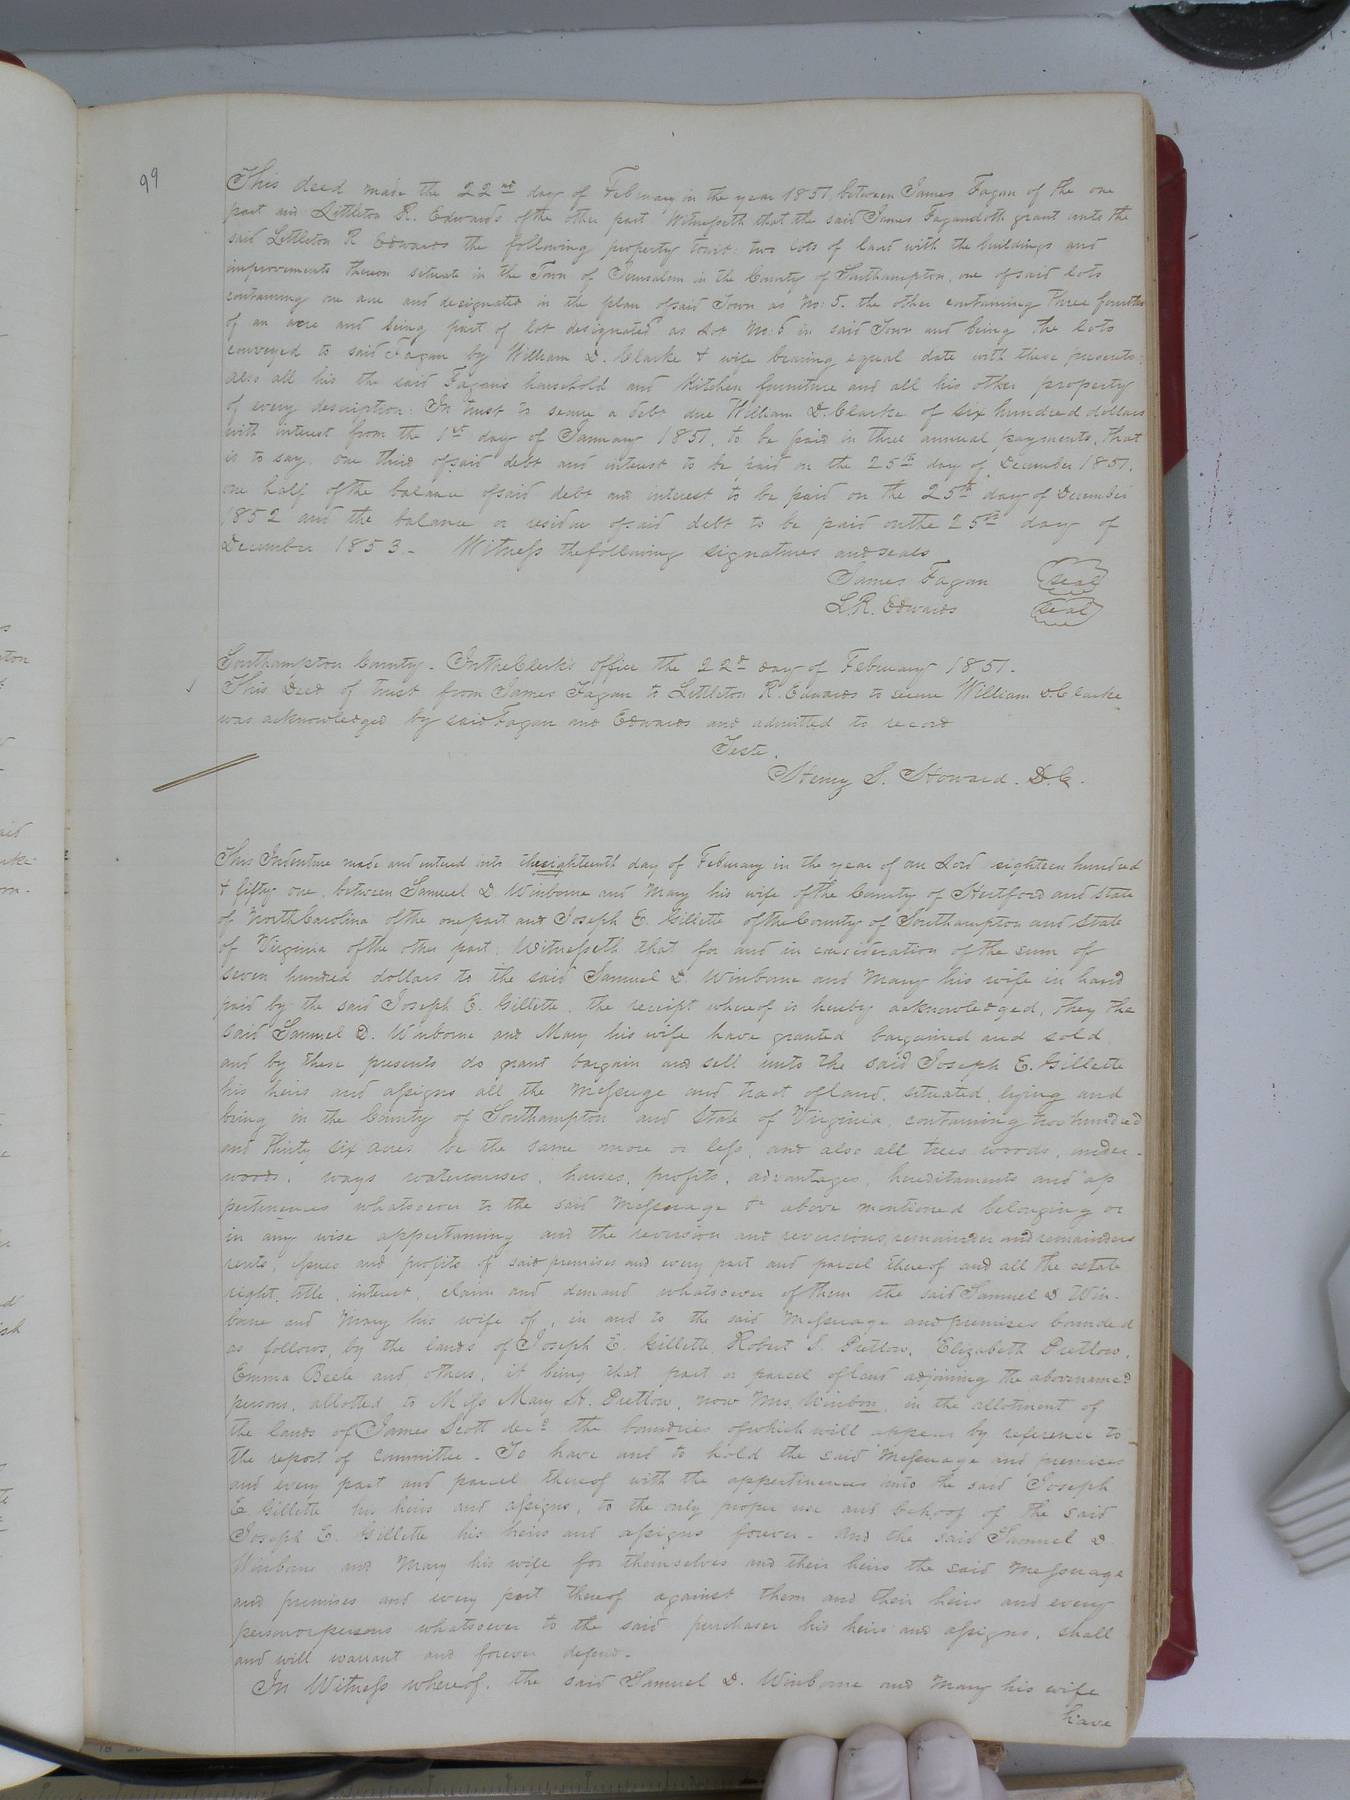 99
This deed made the 22nd day of February in the year 1851, between James Fagan of the one
part and Littleton R. Edwards of the other part Witnesseth that the said James Fagan doth grant unto the
said Littleton R Edwards the following property towit: two lots of land with the buildings and
improvements thereon situate in the Town of Jerusalem in the County of Southampton, one of said lots
containing one acre and designated in the plan of said Town as No: 5. the other containing three fourths
of an acre and being part of lot designated as Lot No: 6 in said Town and being the lots
conveyed to said Fagan by William D. Clarke & wife bearing equal date with these presents:
also all his the said Fagan's household and kitchen furniture and all his other property
of every description: In trust to secure a debt due William D. Clarke of six hundred dollars
with interest from the 1st day of January 1851, to be paid in three annual payments, that
is to say. one third of said debt and interest to be paid on the 25th day of December 1851.
one half of the balance of said debt and interest to be paid on the 25th day of December
1852 and the balance or residue of said debt to be paid on the 25th day of
December 1853. - Witness the following signatures and seals
James Fagan seal
L.R. Edwards seal
Southampton County. In the Clerk's office the 22d day of February 1851.
This Deed of trust from James Fagan to Littleton R. Edwards to secure William D Clarke
was acknowledged by said Fagan and Edwards and admitted to record
Teste.
Henry S. Howard. D.C.
This Indenture made and entered into the eighteenth day of February in the year of our Lord eighteen hundred
& fifty one, between Samuel D Winborne and Mary his wife of the County of Hertford and State
of North Carolina of the one part and Joseph E. Gillette of the County of Southampton and State
of Virginia of the other part: Witnesseth that for and in consideration of the sum of
seven hundred dollars to the said Samuel D. Winborne and Mary his wife in hand
paid by the said Joseph E. Gillette, the receipt whereof is hereby acknowledged, they the
said Samuel D. Winborne and Mary his wife have granted bargained and sold
and by these presents do grant bargain and sell unto the said Joseph E. Gillette
his heirs and assigns all the Messuage and tract of land, situated, lying and
being in the County of Southampton and State of Virginia, containing two hundred
and thirty six acres be the same more or less, and also all trees woods, under-
woods, ways watercourses, houses, profits, advantages, hereditaments and ap
pertenences whatsoever to the said Messuage &c above mentioned belonging or
in any wise appertaining and the reversion and reversions, remainder and remainders
rents, issues and profits of said premises and every part and parcel thereof and all the estate
right, title, interest, claim and demand whatsoever of them the said Samuel D Win-
borne and Mary his wife of, in and to the said Messuage and premises bounded
as follows, by the lands of Joseph E. Gillette, Robert S. Pretlow, Elizabeth Pretlow,
Emma Beele and others, it being that part or parcel of land adjoining the abovenamed
persons, allotted to Miss Mary H. Pretlow, now Mrs. Winborn, in the allotment of
the lands of James Scott decd the boundries of which will appear by reference to
the report of committee. To have and to hold the said Messuage and premises
and every part and parcel thereof with the appertinences unto the said Joseph
E Gillette his heirs and assigns, to the only proper use and behoof of the said
Joseph E. Gillette his heirs and assigns forever. And the said Samuel D.
Winborne and Mary his wife for themselves and their heirs the said Messuage
and premises and every part thereof against them and their heirs and every
person or persons whatsoever to the said purchaser his heirs and assigns, shall
and will warrant and forever defend.
In Witness whereof, the said Samuel D. Winborne and Mary his wife
have